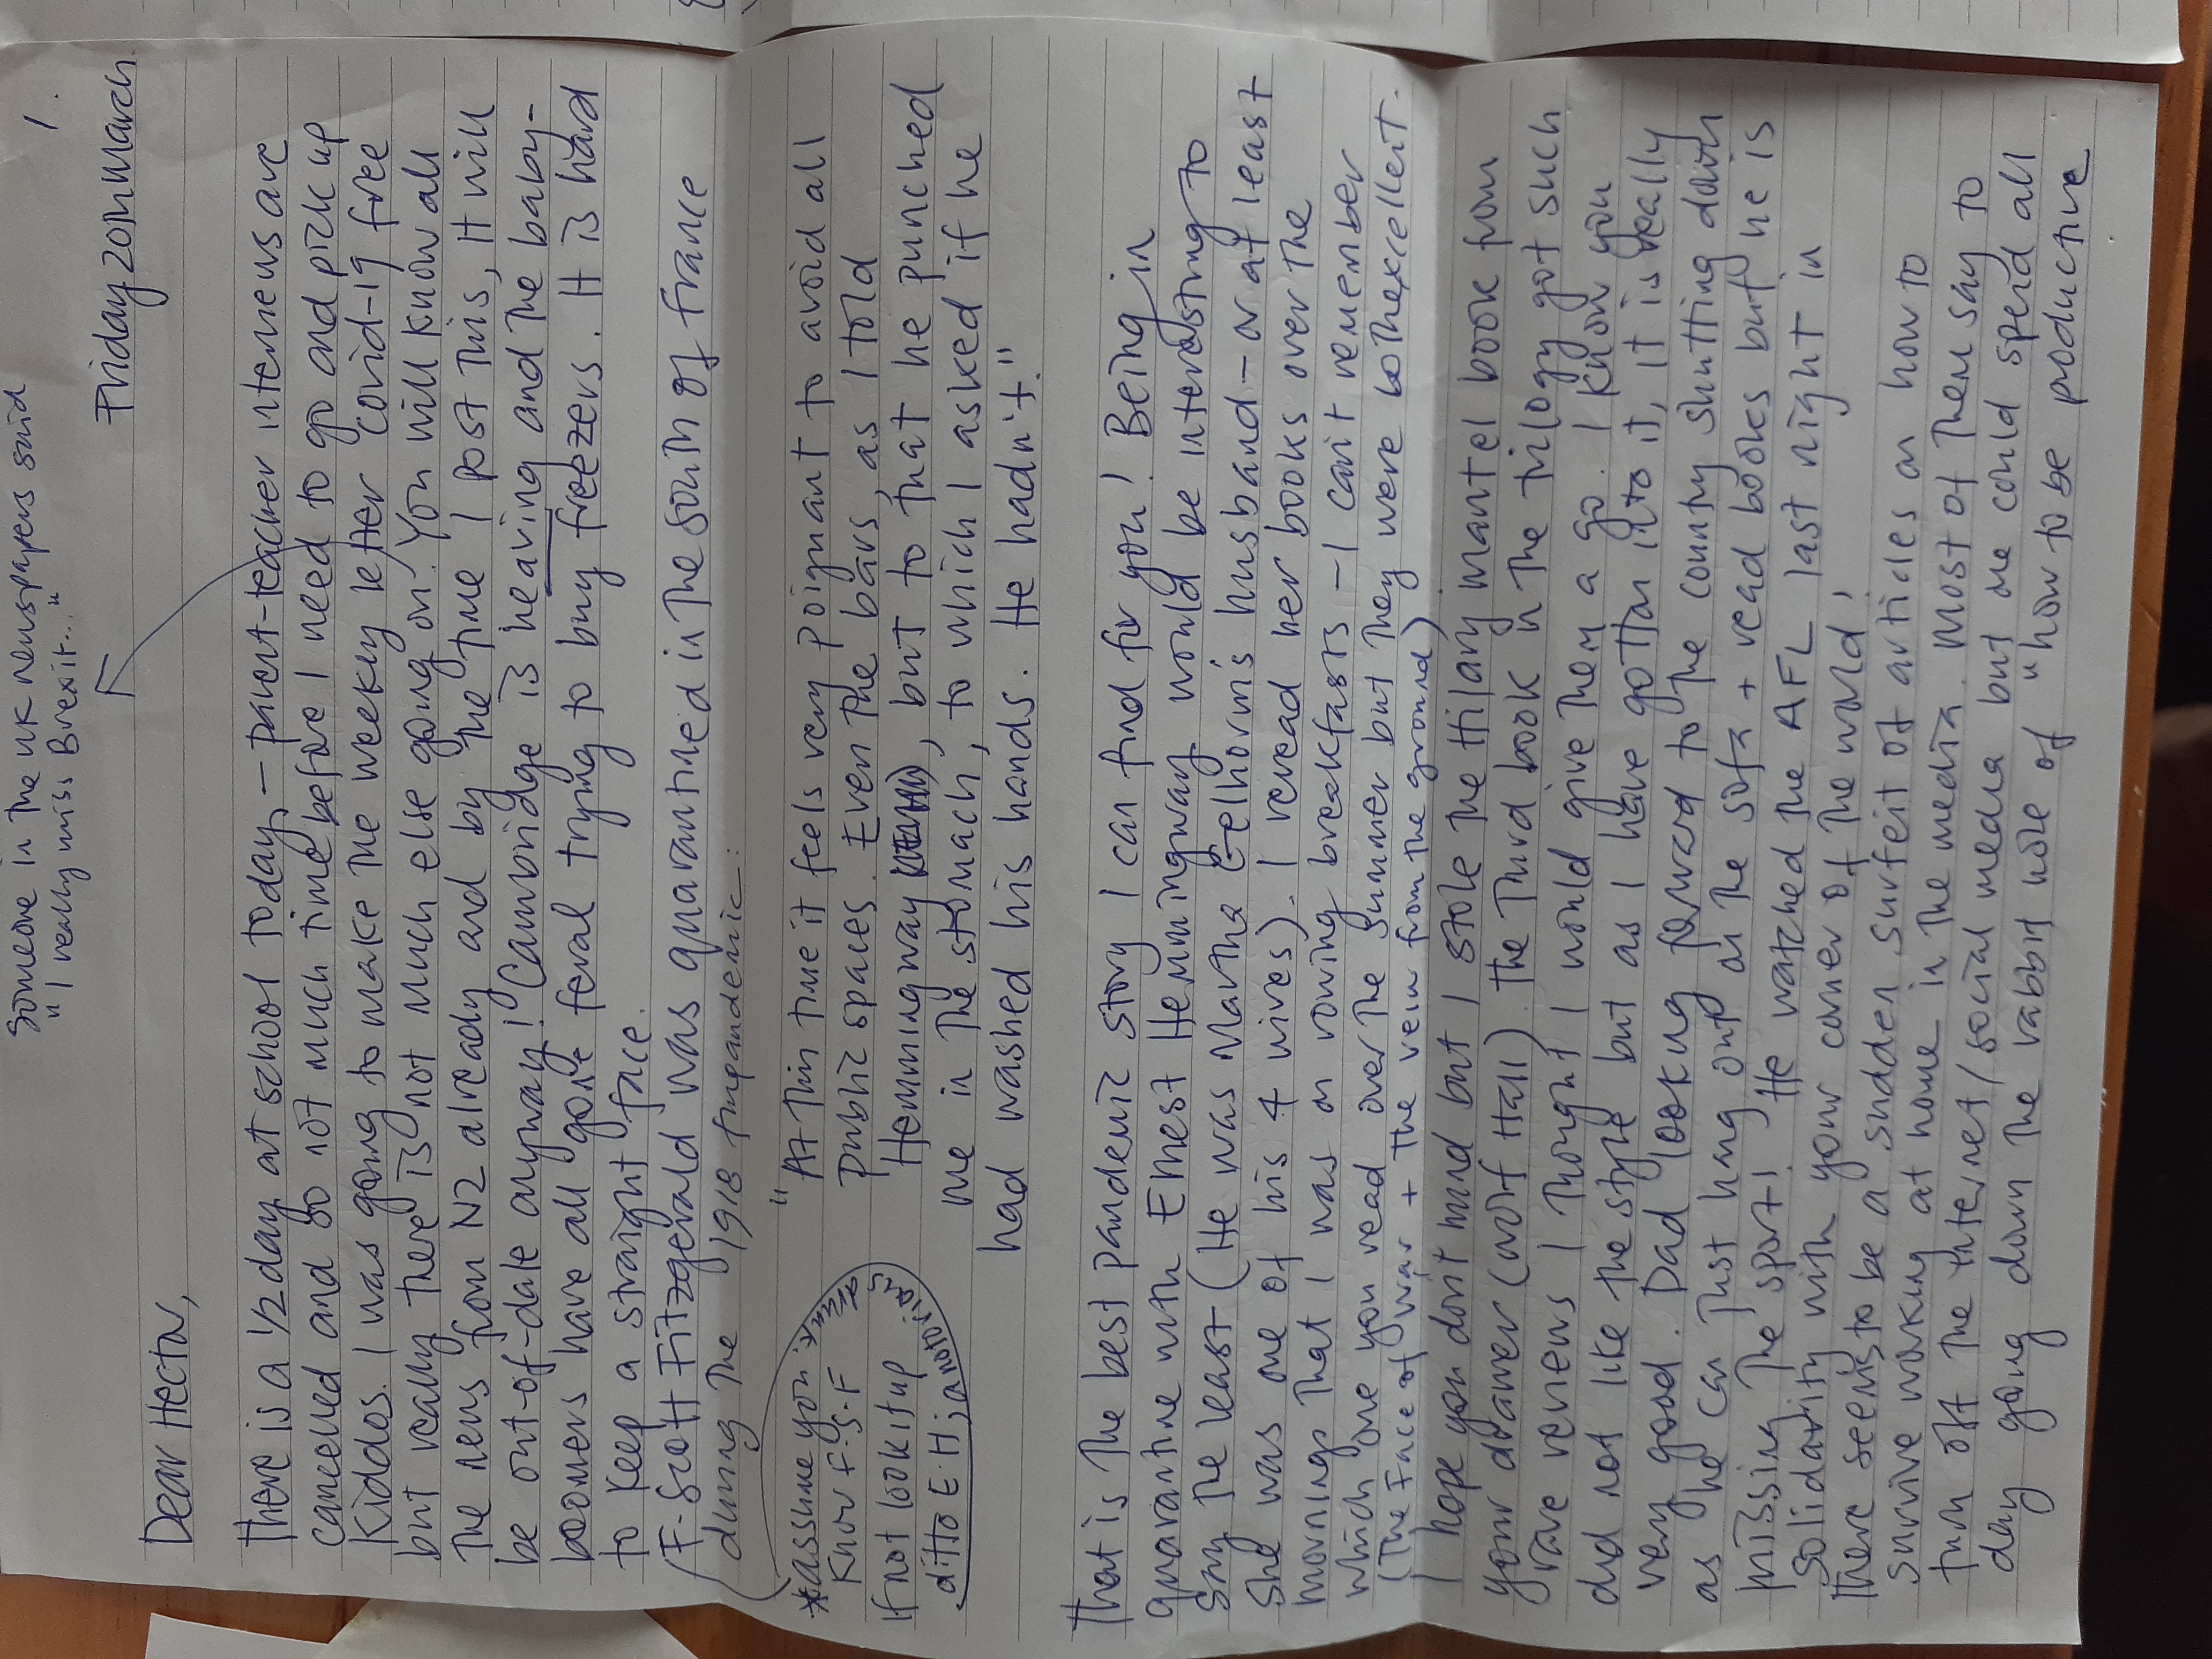 Someone in the UK newspapers said
"I really miss Brexit..."
1.
Friday 20th March
Dear Hector,
There is a 1/2 day at school today - parent-teacher interviews are
cancelled and so not much time before I need to go and pick up
Kiddos. I was going to make the weekly letter covid-19 free
but really there is not much else going on! You will know all
the news from NZ already and by the time I post this, it will
be out-of-date anyway! Cambridge is heaving and the baby-
boomers have all gone feral trying to buy freezers. It is hard
to keep a straight face.
(F-Scott Fitzgerald was quarantined in the south of France
during the 1918 flu pandemic:
"At this time it feels very poignant to avoid all
public spaces. Even the bars, as I told
Hemmingway, but to that he punched
me in the stomach, to which I asked if he
had washed his hands. He hadn't."
*assume you
know F-S-F
If not look it up
ditto E.H;
That is the best pandemic story I can find for you! Being in
quarantine with Ernest Hemmingway would be interesting to
say the least (He was Martha Gellhorn's husband - or at least
she was one of his 4 wives). I reread her books over the
mornings that I was on rowing breakfasts - I can't remember
which one you read over the summer but they were both excellent.
(The Face of War + The view from the ground)
I hope you don't mind but I stole the Hilary Mantel book from
your drawer (Wolf Hall). The third book in the trilogy got such
rave reviews I thought I would give them a go. I know you
did not like the style but as I have gotton into it, it is really
very good. Dad looking forward to the country shutting down
as he can just hang out on the sofa + read books but he is
missing the sport! He watched the AFL last night in
solidarity with your corner of the world!
There seems to be a sudden surfeit of articles on how to
survive working at home in the media. Most of them say to
turn off the internet/social media but one could spend all
day going down the rabbit hole of "how to be productive